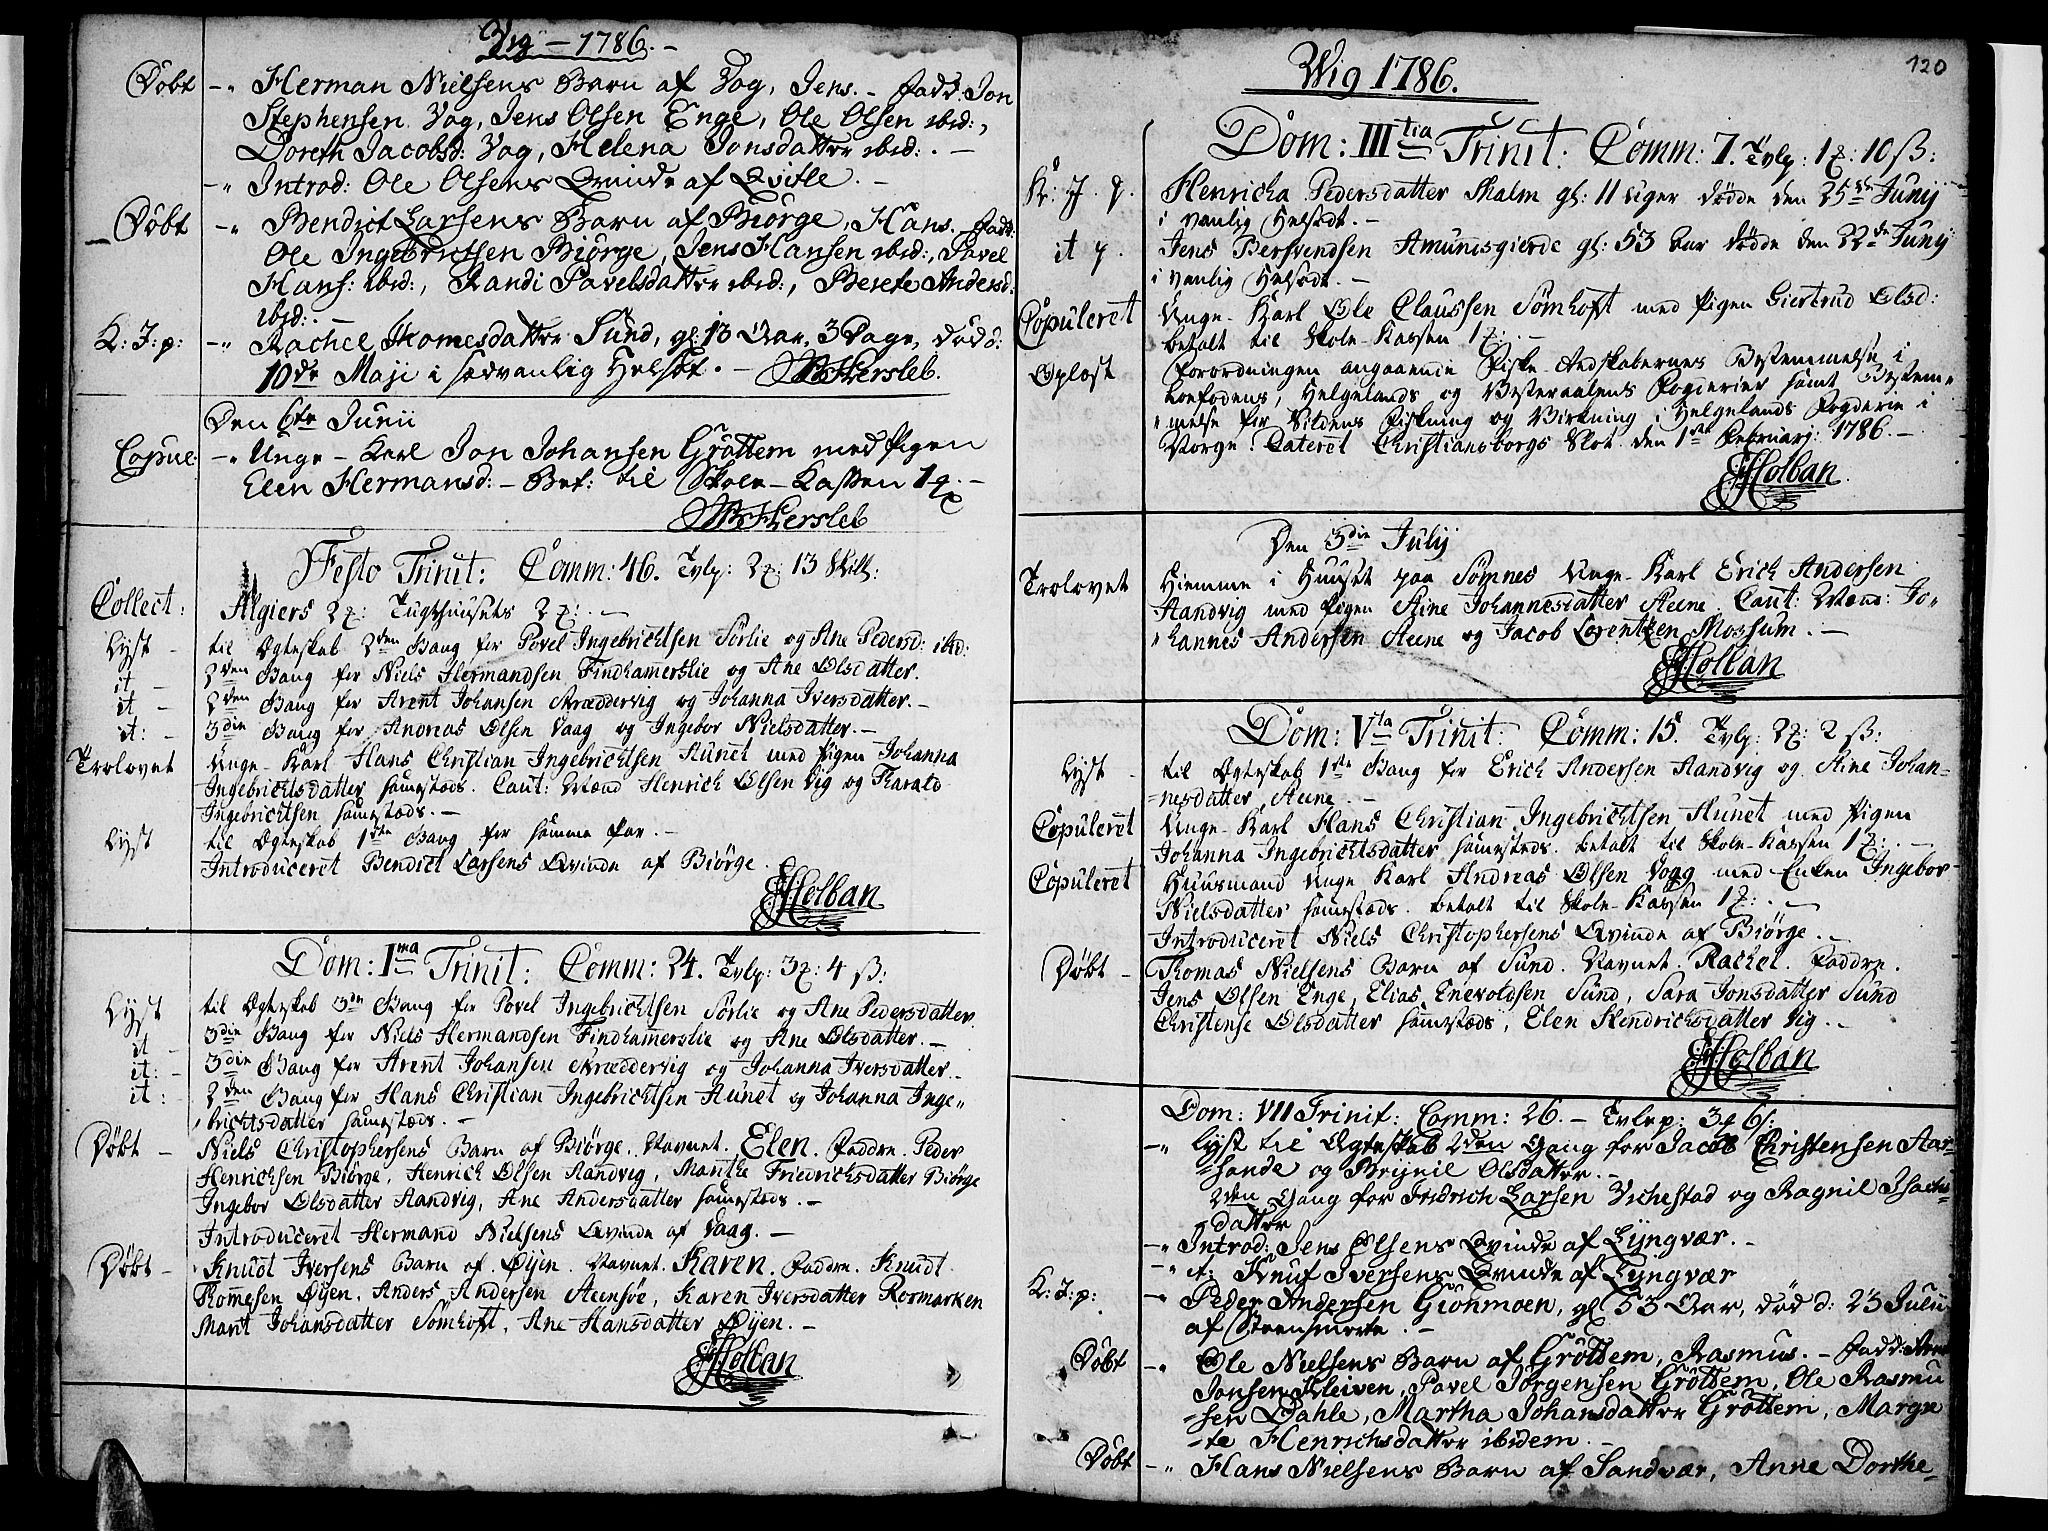 Vig – 1786. –
Døbt –" Herman Nielsens Barn af Vog, Jens. – Fadd: Jon
Stephensen Vog, Jens Olsen Enge, Ole Olsen ibid:,
Doreth Jacobsd: Vog, Helena Jonsdatter ibid: . –
–" Introd: Ole Olsens Qvinde af Qvitle. –
Døbt –" Bendict Larsens Barn af Biørge, Hans. Fadd:
Ole Ingebrictsen Biørge, Jens Hansen ibid:, Pavel
Hans: ibid:, Randi Pavelsdatter ibid:, Berete Andersd:
ibid: . –
K: J: p: –" Rachel Thomesdatter Sund, gl: 13 Aar, 3 Dage, død d:
10de Maji i sædvanlig Helsot. –
Hersleb.
Den 6te Junii
Copul. –" Unge – Karl Jon Johansen Grøttem med Pigen
Elen Hermansd: – Bet: til Skole – Kassen 1
Hersleb
Festo Trinit: Comm: 46. Tvlp: 2 : 13 Skill:
Collect: Algiers 2 : Tugthuusets 2 : . –
Lyst – til Ægteskab 2den Gang for Povel Ingebrichtsen Sørlie og Ane Pedersd: ibid:
it – 2den Gang for Niels Hermandsen Findhamerslie og Ane Olsdatter.
it – 2den Gang for Arent Johansen Skræddervig og Johanna Iversdatter. –
it: – 3die Gang for Andreas Olsen Vaag og Ingebor Nielsdatter. –
Trolovet Unge – Karl Hans Christian Ingebrichtsen Hunet med Pigen Johanna
Ingebrichtsdatter samestæds. Caut: Mænd Henrich Olsen Vig og Harald
Ingebrichtsen samestæds. –
Lyst til Ægteskab 1ste Gang for samme Par. –
Introduceret Bendict Larsens Qvinde af Biørge.
Holban
Dom: Ima Trinit: Comm: 24. Tvlp: 3 : 4 ß:
Lyst til Ægteskab 3die Gang for Povel Ingebrichtsen Sørlie og Ane Pedersdatter.
it – 3die Gang for Niels Hermandsen Findhamerslie og Ane Olsdatter. –
it: – 3die Gang for Arent Johansen Skræddervig og Johanna Iversdatter. –
it: 2den Gang for Hans Christian Ingebrichtsen Hunet og Johanna Inge-
brichtsdatter samestæds. –
Døbt – Niels Christophersens Barn af Biørge. Navnet. Elen. Faddre. Peder
Henrichsen Biørge, Henrich Olsen Aandvig, Marithe Friedrichsdatter Biørge
Ingebor Olsdatter Aandvig, Ane Andersdatter samestæds. –
Introduceret Hermand Nielsens Qvinde af Vaag. –
Døbt – Knudt Iversens Barn af Øÿen. Navnet. Karen. Faddre. Knudt
Thomesen Øÿen. Anders Andersen Steensøe, Karen Iversdatter Rormarken
Marit Johansdatter Sømhoft, Ane Hansdatter Øÿen. –
Holban
120
Wig 1786.
Dom: IIItia Trinit: Comm: 7. Tvlp: 1 : 10 ß:
K: J. p. Henricha Pedersdatter Skalm gl: 11 Uger døde den 25de Junij
i vanlig Helsodt. –
it p. Jens Bersvendsen Amunsgierde gl: 53 Aar døde den 22de Junij
i vanlig Helsodt. –
Copuleret Unge – Karl Ole Claussen Sømhoft med Pigen Giertrud Olsd:
betalt til Skole – Kassen 1 : . –
Oplæst Forordningen angaaende Fiske – Redskabernes Bestemmelse i
Lofodens, Helgelands og Vesteraalens Fogderier samt Bestem-
melse for Sildens Fiskning og Virkning i Helgelands Fogderie i
Norge. Dateret Christiansborgs Slot den 1ste Februarij 1786. –
Holban.
Den 3die Julij
Trolovet Hiemme i Huuset paa Sømnes Unge – Karl Erich Andersen
Aandvig med Pigen Stine Johannesdatter Steene. Caut: Mænd: Jo-
hannes Andersen Steene og Jacob Lorentzen Mossum. –
Holban
Dom: Vta Trinit: Comm: 15. Tvlp: 2 : 2 ß:
Lyst – til Ægteskab 1ste Gang for Erich Andersen Aandvig og Stine Johan-
nesdatter Steene. –
Copuleret Unge – Karl Hans Christian Ingebrichtsen Hunet med Pigen
Johanna Ingebrichtsdatter samestæds. betalt til Skole – Kassen 1 : . –
Copuleret Huusmand Unge Karl Andreas Olsen Vogg med Enken Ingebor
Nielsdatter samestæds. betalt til Skole – Kassen 1 : . –
Introduceret Niels Christophersens Qvinde af Biørge. –
Døbt – Thomas Nielsens Barn af Sund. Navnet. Rachel. Faddre.
Jens Olsen Enge, Elias Enevoldsen Sund, Sara Jonsdatter Sund
Christense Olsdatter samestæds, Elen Hendrichsdatter Vig. –
Holban
Dom: VII Trinit: Comm: 26. – Tvlp: 3 6 ß:
–" Lyst til Ægteskab 2den Gang for Jacob Christensen Aar-
sande og Brijnil Olsdatter. –
2den Gang for Fridrich Larsen Vichestad og Ragnil Isachs-
datter
–" Introd: Jens Olsens Qvinde af Lyngvær. –
–" it: Knut Iversens Qvinde af Lyngvær
K: J: p: –" Peder Andersen Giøhmoen, gl: 53 Aar, død d: 23 Julii
af Steensmerte. –
Døbt –" Ole Nielsens Barn af Grøttem, Rasmus. – Fadd:
Jonsen Kleiven, Pavel Jørgensen Grøttem, Ole Rasmu
sen Dahle, Martha Johansdatter Grøttem, Margre
te Henrichsdatter ibidem. –
Døbt –" Hans Nielsens Barn af Sandvær, Anne Dorthe-